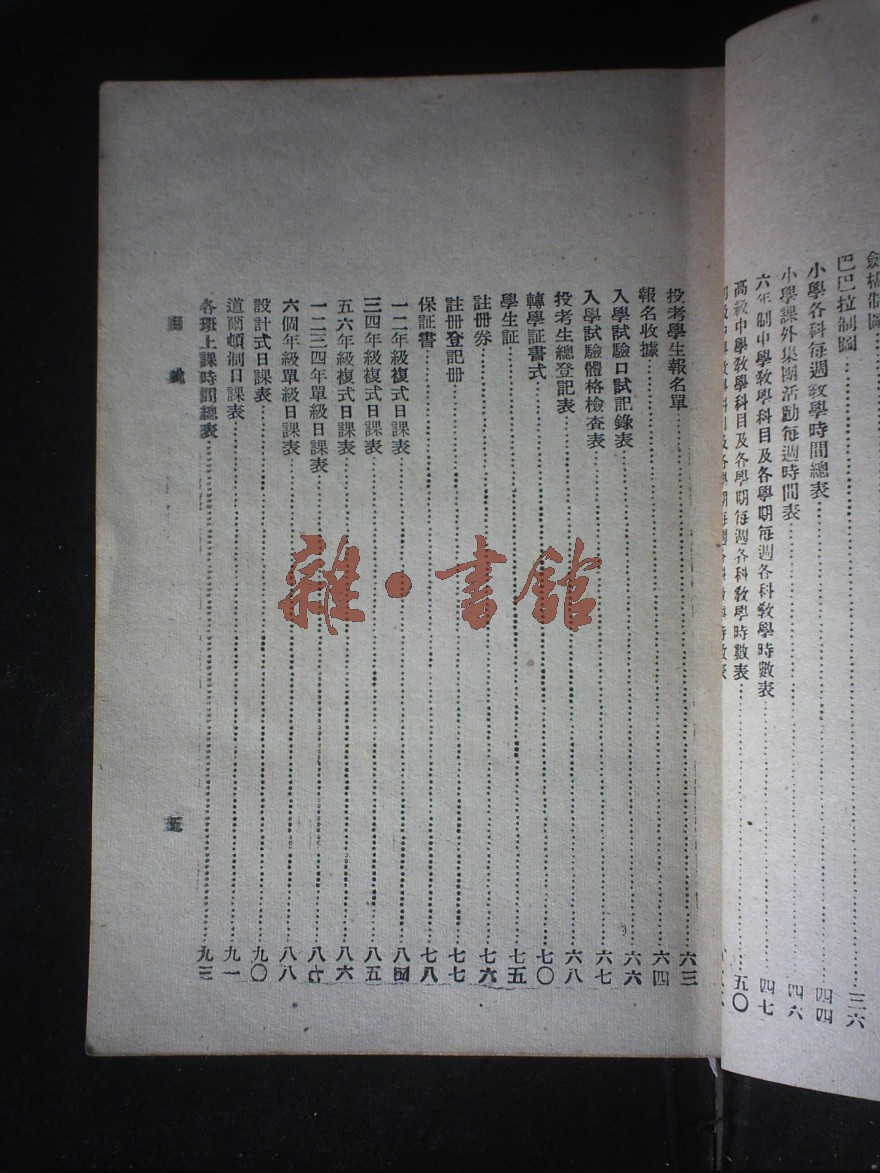 巴巴拉制圖 三六
小學各科每週教學時間總表 四四
小學課外集團活動每週時間表 四六
六年制中學教學科目及各學期每週各科教學時數表 四七
高級中學教學科目及各學期每週各科教學時數表 五〇
投考學生報名單 六三
報名收據 六四
入學試驗口試記錄表 六六
入學試驗體格檢查表 六七
投考生總登記表 六八
轉學証書式 七〇
學生証 七五
註冊券 七六
註冊登記冊 七七
保証書 七八
一二年級複式日課表 八四
三四年級複式日課表 八五
五六年級複式日課表 八六
一二三四年單級日課表 八七
六個年級單級日課表 八八
設計式日課表 九〇
道爾頓制日課表 九一
各班上課時間總表 九三
五
雜·書館